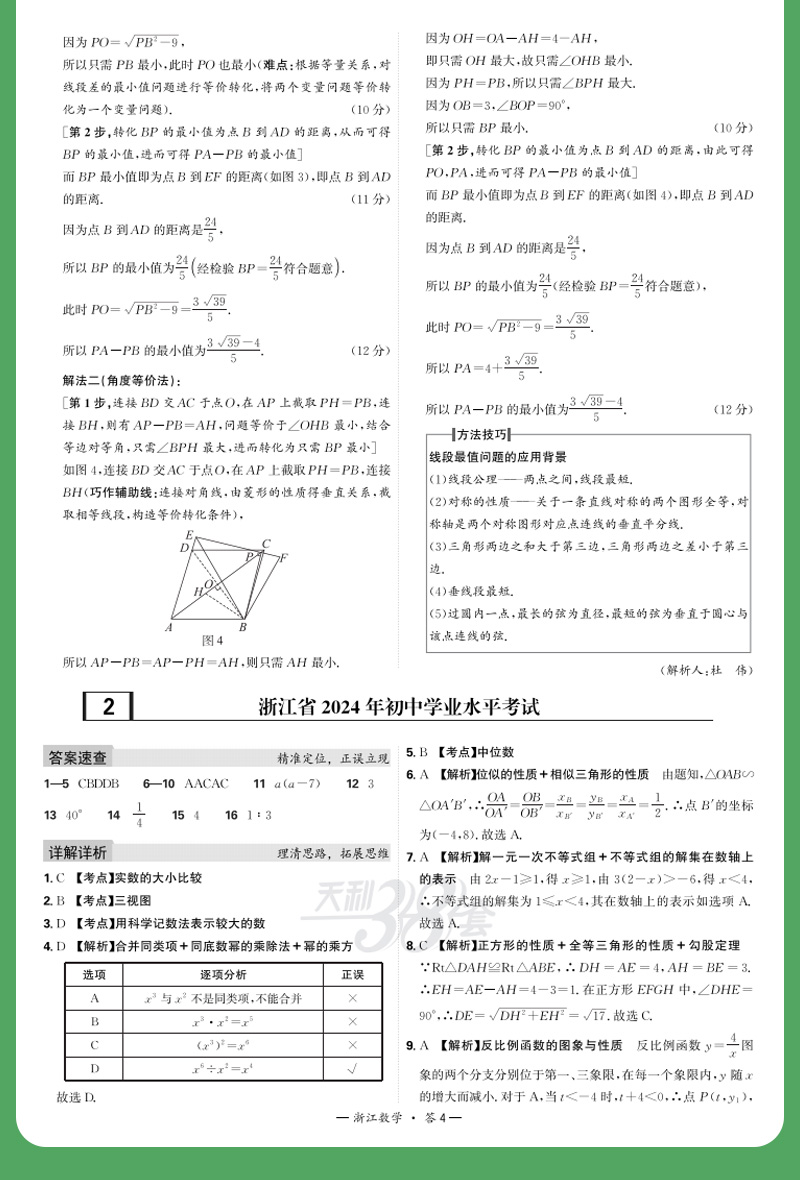 因为 PO=√PB²-9,
所以只需 PB 最小,此时 PO 也最小(难点:根据等量关系,对
线段差的最小值问题进行等价转化,将两个变量问题等价转
化为一个变量问题). (10 分)
[第 2 步,转化 BP 的最小值为点 B 到 AD 的距离,从而可得
BP 的最小值,进而可得 PA-PB 的最小值]
而 BP 最小值即为点 B 到 EF 的距离(如图 3),即点 B 到 AD
的距离. (11 分)
因为点 B 到 AD 的距离是24/5,
所以 BP 的最小值为24/5(经检验 BP=24/5符合题意).
此时 PO=√PB²-9=3√39/5.
所以 PA-PB 的最小值为3√39-4/5. (12 分)
解法二(角度等价法):
[第 1 步,连接 BD 交 AC 于点 O,在 AP 上截取 PH=PB,连
接 BH,则有 AP-PB=AH,问题等价于∠OHB 最小,结合
等边对等角,只需∠BPH 最大,进而转化为只需 BP 最小]
如图 4,连接 BD 交 AC 于点 O,在 AP 上截取 PH=PB,连接
BH(巧作辅助线:连接对角线,由菱形的性质得垂直关系,截
取相等线段,构造等价转化条件),
E
D
C
P
F
O
H
A
B
图 4
所以 AP-PB=AP-PH=AH,则只需 AH 最小.
因为 OH=OA-AH=4-AH,
即只需 OH 最大,故只需∠OHB 最小.
因为 PH=PB,所以只需∠BPH 最大.
因为 OB=3,∠BOP=90°,
所以只需 BP 最小. (10 分)
[第 2 步,转化 BP 的最小值为点 B 到 AD 的距离,由此可得
PO,PA,进而可得 PA-PB 的最小值]
而 BP 最小值即为点 B 到 EF 的距离(如图 4),即点 B 到 AD
的距离.
因为点 B 到 AD 的距离是24/5,
所以 BP 的最小值为24/5(经检验 BP=24/5符合题意),
此时 PO=√PB²-9=3√39/5.
所以 PA=4+3√39/5.
所以 PA-PB 的最小值为3√39-4/5. (12 分)
方法技巧
线段最值问题的应用背景
(1)线段公理——两点之间,线段最短.
(2)对称的性质——关于一条直线对称的两个图形全等,对
称轴是两个对称图形对应点连线的垂直平分线.
(3)三角形两边之和大于第三边,三角形两边之差小于第三
边.
(4)垂线段最短.
(5)过圆内一点,最长的弦为直径,最短的弦为垂直于圆心与
该点连线的弦.
(解析人:杜 伟)
2 浙江省 2024 年初中学业水平考试
答案速查 精准定位,正误立现
1—5 CBDDB 6—10 AACAC 11 a(a-7) 12 3
13 40° 14 1/4 15 4 16 1∶3
详解详析 理清思路,拓展思维
1. C 【考点】实数的大小比较
2. B 【考点】三视图
3. D 【考点】用科学记数法表示较大的数
4. D 【解析】合并同类项+同底数幂的乘除法+幂的乘方
选项 逐项分析 正误
A x³ 与 x² 不是同类项,不能合并 ×
B x³·x²=x⁵ ×
C (x³)²=x⁶ ×
D x⁶÷x²=x⁴ √
故选 D.
5. B 【考点】中位数
6. A 【解析】位似的性质+相似三角形的性质 由题知,△OAB∽
△OA′B′,∴OA/OA′=OB/OB′=x_B/x_B′=y_B/y_B′=x_A/x_A′=1/2.∴点 B′的坐标
为(-4,8).故选 A.
7. A 【解析】解一元一次不等式组+不等式组的解集在数轴上
的表示 由 2x-1≥1,得 x≥1,由 3(2-x)>-6,得 x<4,
∴不等式组的解集为 1≤x<4,其在数轴上的表示如选项 A.
故选 A.
8. C 【解析】正方形的性质+全等三角形的性质+勾股定理
∵Rt△DAH≌Rt△ABE,∴DH=AE=4,AH=BE=3.
∴EH=AE-AH=4-3=1.在正方形 EFGH 中,∠DHE=
90°,∴DE=√DH²+EH²=√17.故选 C.
9. A 【解析】反比例函数的图象与性质 反比例函数 y=4/x图
象的两个分支分别位于第一、三象限,在每一个象限内,y 随 x
的增大而减小.对于 A,当 t<-4 时,t+4<0,∴点 P(t,y₁),
天利38套
— 浙江数学 · 答 4 —